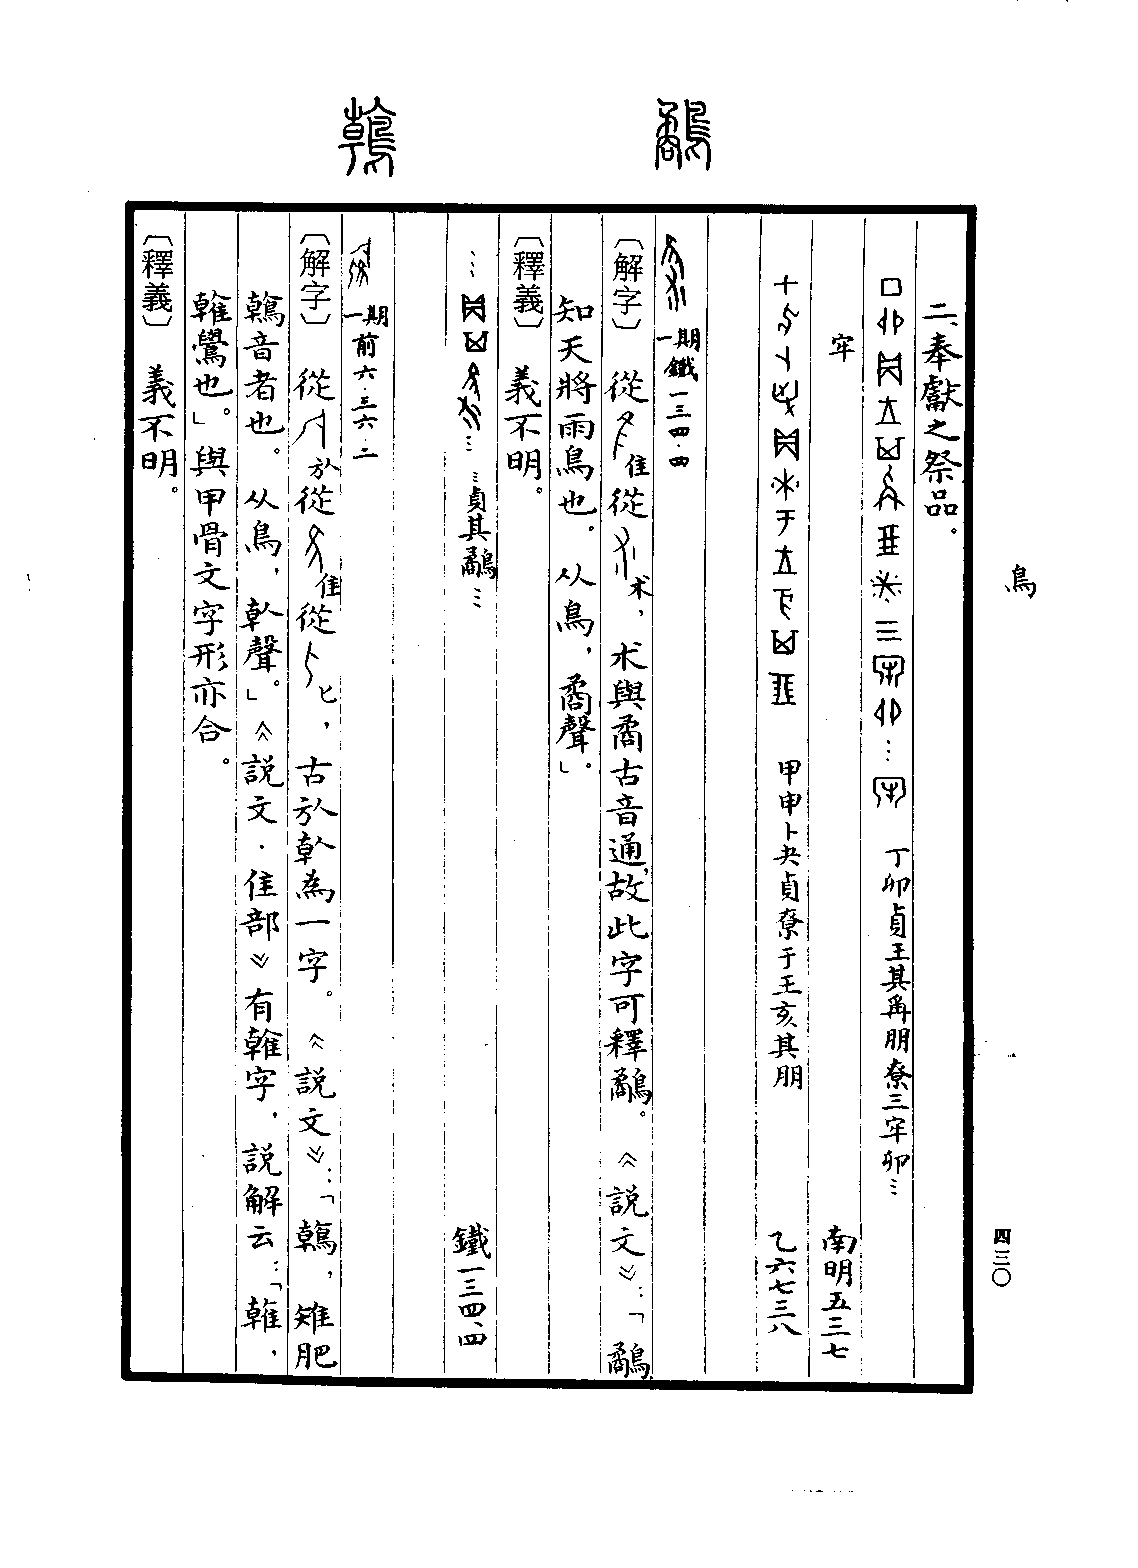 鳥
四三〇
鷸
鶾
二、奉獻之祭品。
丁卯貞王其爯朋尞三牢卯…
牢
南明五三七
甲申卜 貞尞于王亥其朋
乙六七三八
一期鐵一三四·四
〔解字〕從隹從朮，朮與矞古音通，故此字可釋鷸。《說文》：「鷸，
知天將雨鳥也。从鳥，矞聲」。
〔釋義〕義不明。
…貞其鷸…
鐵一三四、四
一期前六·三六·二
〔解字〕從㫃從隹從匕，古㫃倝為一字。《說文》：「鶾，雉肥
鶾音者也。从鳥，倝聲。」《說文·隹部》有雗字，說解云：「雗，
雗鷽也。」與甲骨文字形亦合。
〔釋義〕義不明。